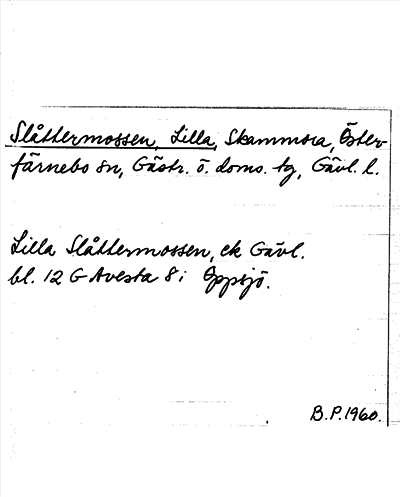 Slåttermossen, Lilla, Skammora, Öster
färnebo sn, Gästr. ö. doms. tg, Gävl. l.
Lilla Slåttermossen, ek Gävl.
bl. 12 G Avesta 8 i Oppsjö.
B.P. 1960.